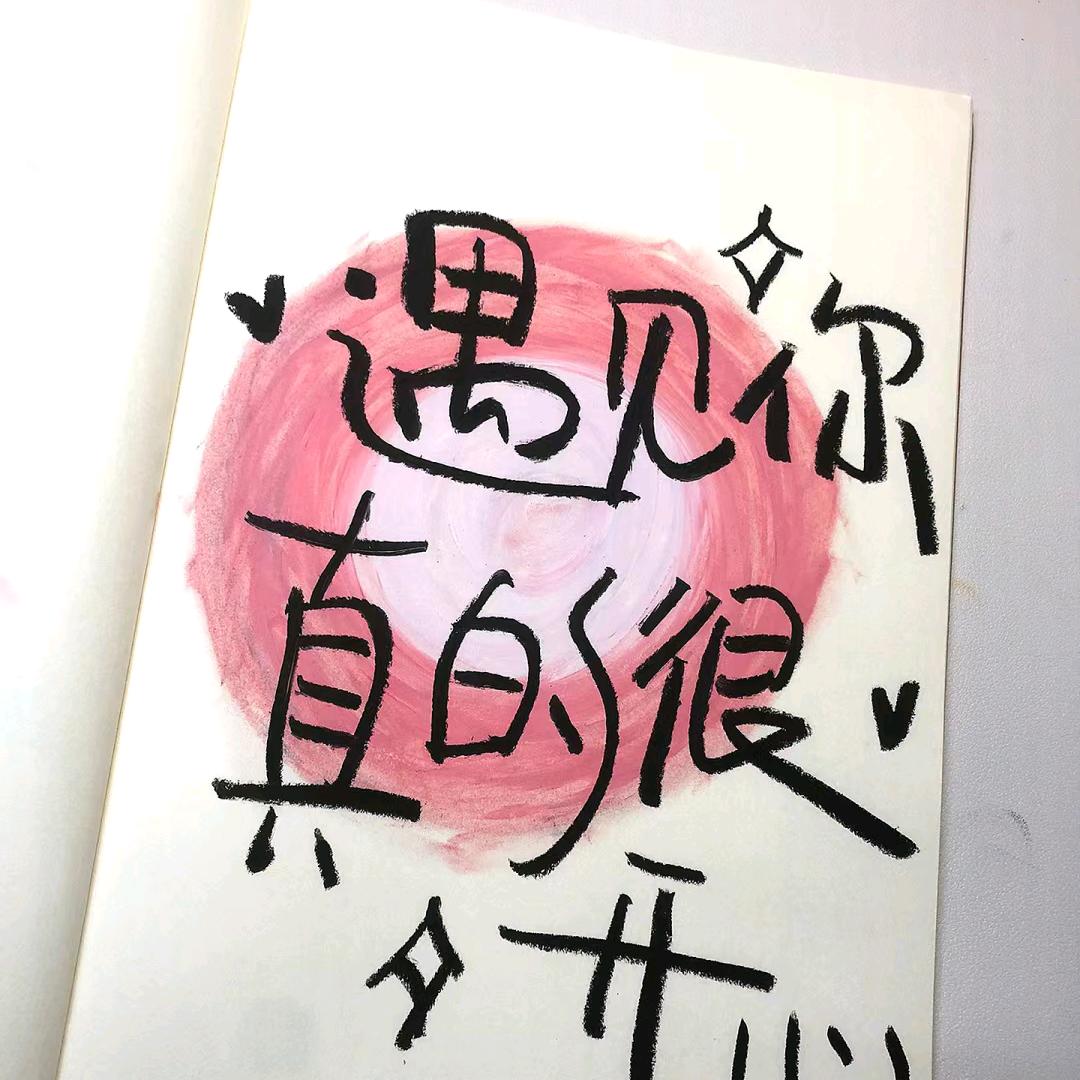 遇见你
真的很
开心